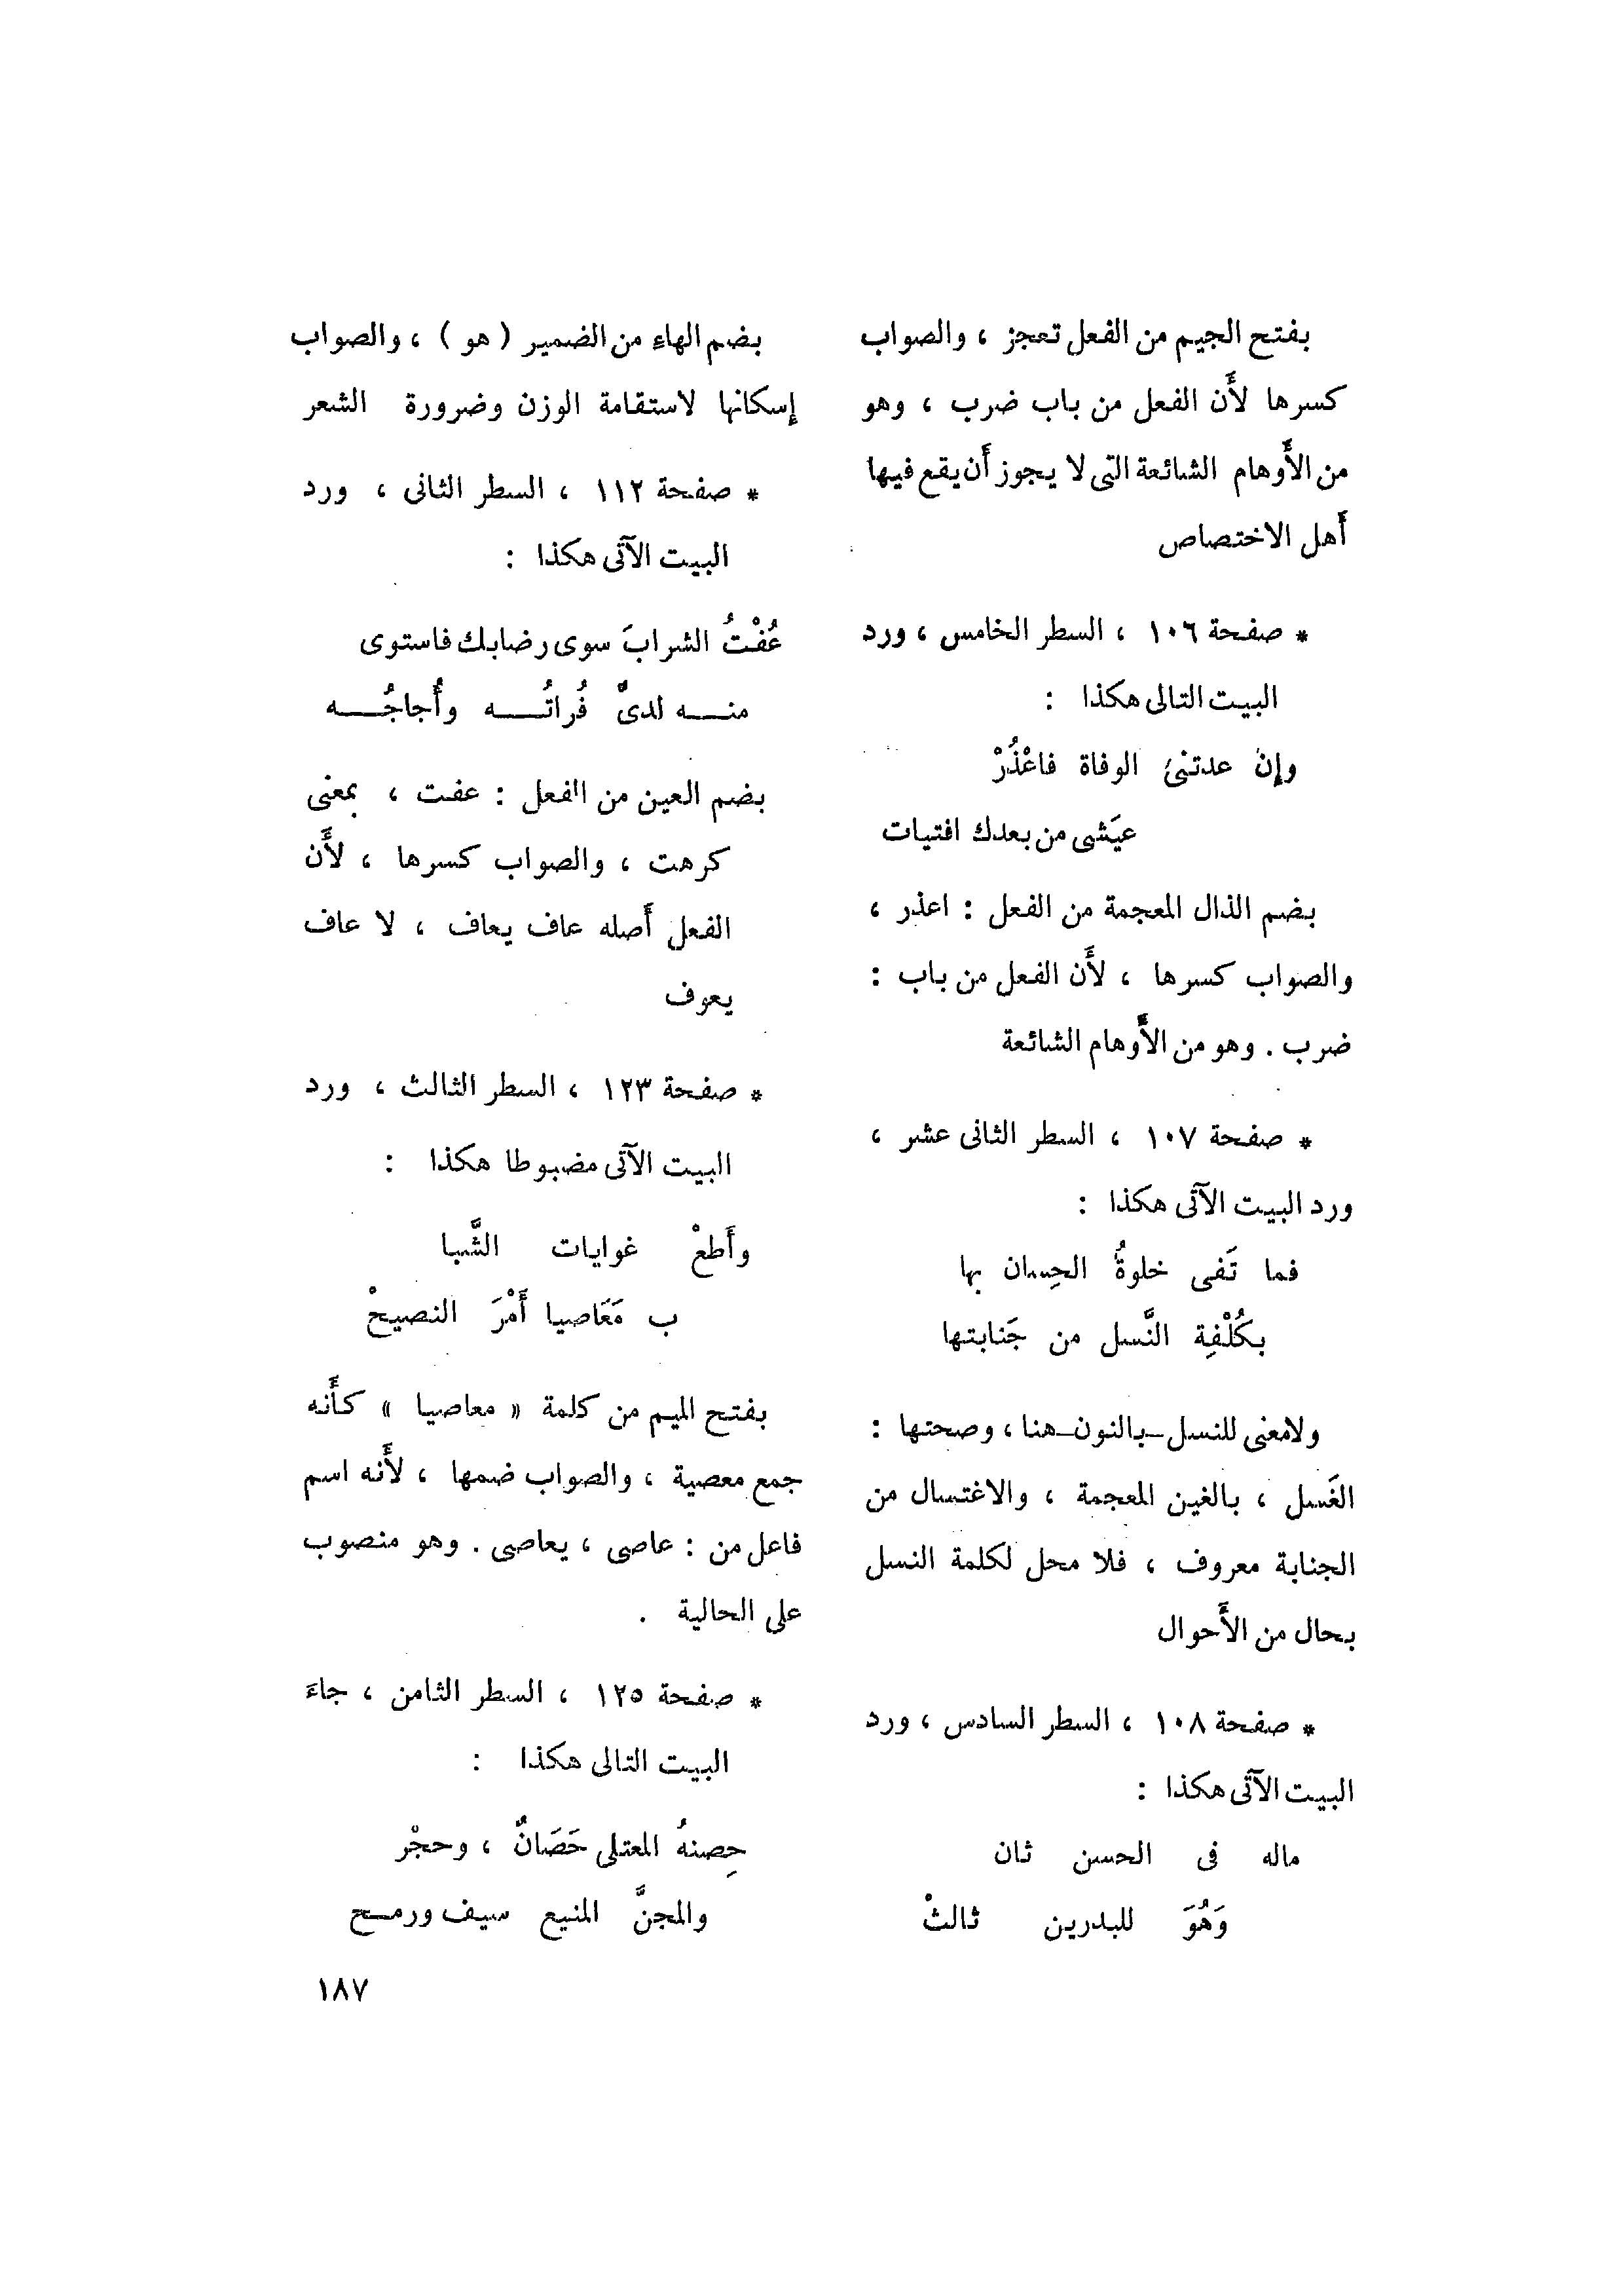 بفتح الجيم من الفعل تعجز ، والصواب
كسرها لأَن الفعل من باب ضرب ، وهو
من الأَوهام الشائعة التى لا يجوز أَن يقع فيها
أَهل الاختصاص
* صفحة ١٠٦ ، السطر الخامس ، ورد
البيت التالى هكذا :
وإن عدتنىْ الوفاة فاعْذُرْ
عيَشى من بعدك افتيات
بضم الذال المعجمة من الفعل : اعذر ،
والصواب كسرها ، لأَن الفعل من باب :
ضرب . وهو من الأَوهام الشائعة
* صفحة ١٠٧ ، السطر الثانى عشر ،
ورد البيت الآتى هكذا :
فما تَفى خلوةُ الحِسان بها
بكُلْفِة النَّسل من جَنابتها
ولامعنى للنسل_بالنون_هنا ، وصحتها :
الغَسل ، بالغين المعجمة ، والاغتسال من
الجنابة معروف ، فلا محل لكلمة النسل
بحال من الأَحوال
* صفحة ١٠٨ ، السطر السادس ، ورد
البيت الآتى هكذا :
ماله فى الحسن ثان
وَهُوَ للبدرين ثالثْ
بضم الهاءِ من الضمير ( هو ) ، والصواب
إسكانها لاستقامة الوزن وضرورة الشعر
* صفحة ١١٢ ، السطر الثانى ، ورد
البيت الآتى هكذا :
عُفْتُ الشرابَ سوى رضابك فاستوى
منـــه لدىَّ فُراتُـــه وأُجاجُـــه
بضم العين من الفعل : عفت ، بمعنى
كرهت ، والصواب كسرها ، لأَن
الفعل أَصله عاف يعاف ، لا عاف
يعوف
* صفحة ١٢٣ ، السطر الثالث ، ورد
البيت الآتى مضبوطا هكذا :
وأَطعْ غوايات الشَّبا
ب مَعَاصيا أَمْرَ النصيحْ
بفتح الميم من كلمة « معاصيا » كأَنه
جمع معصية ، والصواب ضمها ، لأَنه اسم
فاعل من : عاصى ، يعاصى . وهو منصوب
على الحالية .
* صفحة ١٢٥ ، السطر الثامن ، جاءَ
البيت التالى هكذا :
حِصنهُ المعتلى حَصَانٌ ، وحجْر
والمجنَّ المنيع سيف ورمـح
١٨٧